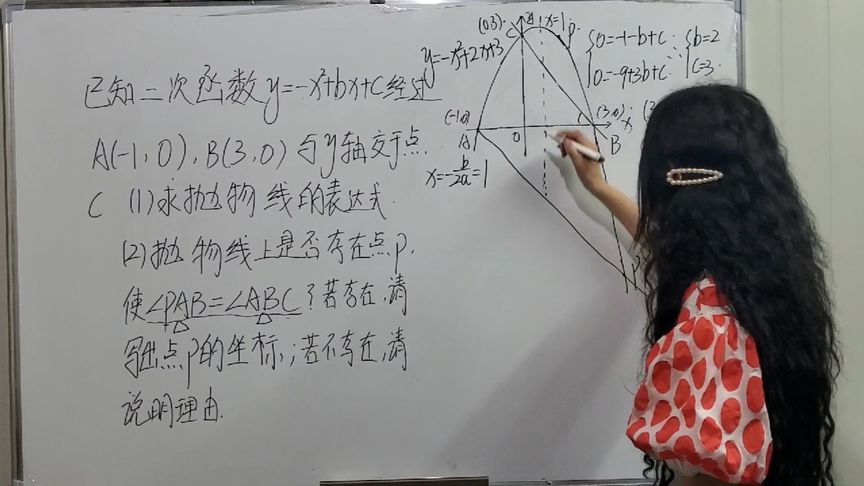 已知二次函数y=-x²+bx+c经过
A(-1,0),B(3,0)与y轴交于点
C (1)求抛物线的表达式.
(2)抛物线上是否存在点P.
使∠PAB=∠ABC?若存在,请
写出点P的坐标;若不存在,请
说明理由.
(0,3)
C
x=1
P
y=-x²+2x+3
0=-1-b+c
0=-9+3b+c
b=2
c=3
(-1,0)
A
O
(3,0)
x
B
x=-b/2a=1
P